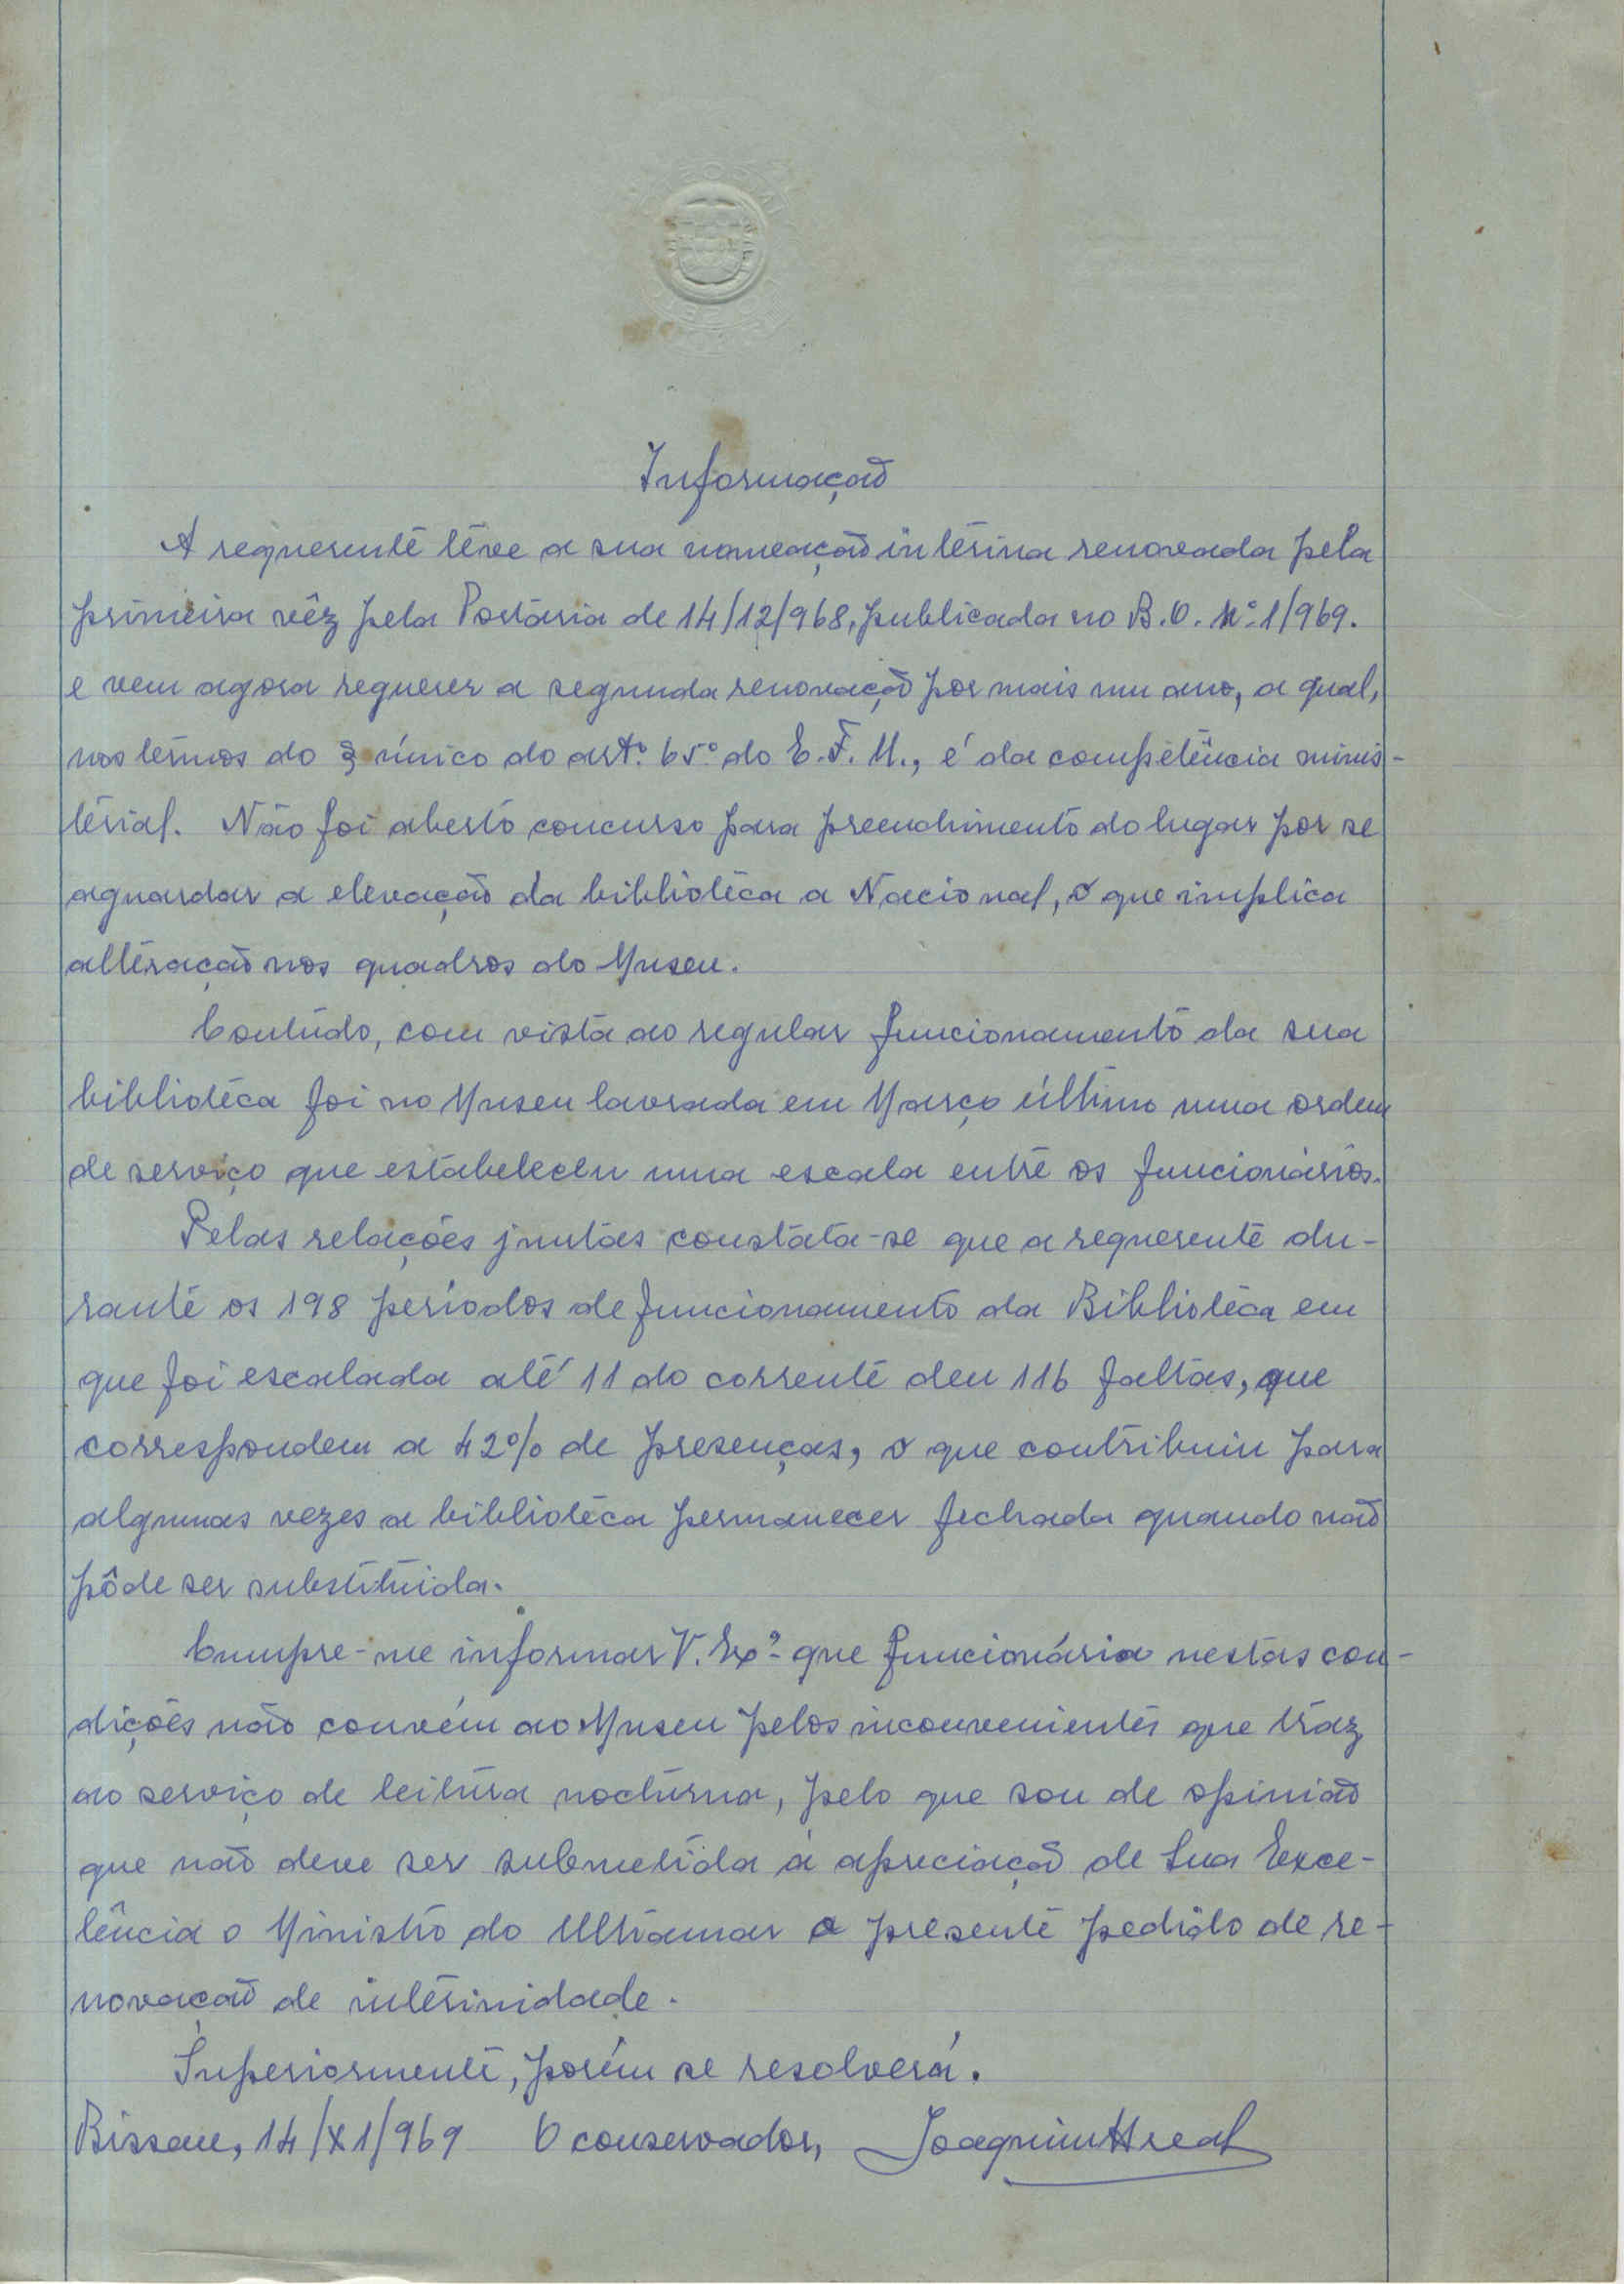 Informação
A requerente têve a sua nomeação interina renovada pela
primeira vêz pela Portaria de 14/12/968, publicada no B.O. nº 1/969.
e vem agora requerer a segunda renovação por mais um ano, a qual,
nos termos do § único do artº. 65º do E.F.U., é da competência minis-
terial. Não foi aberto concurso para preenchimento do lugar por se
aguardar a elevação da biblioteca a Nacional, o que implica
alteração nos quadros do Museu.
Contudo, com vista ao regular funcionamento da sua
biblioteca foi no Museu lavrada em Março último uma ordem
de serviço que estabeleceu uma escala entre os funcionários.
Pelas relações juntas constata-se que a requerente du-
rante os 198 períodos de funcionamento da Biblioteca em
que foi escalada até 11 do corrente deu 116 faltas, que
correspondem a 42% de presenças, o que contribuiu para
algumas vezes a biblioteca permanecer fechada quando não
pôde ser substituida.
Cumpre-me informar V. Exª que funcionária nestas con-
dições não convém ao Museu pelos inconvenientes que tráz
ao serviço de leitura nocturna, pelo que sou de opinião
que não deve ser submetida à apreciação de Sua Exce-
lência o Ministro do Ultramar o presente pedido de re-
novação de interinidade.
Superiormente, porém se resolverá.
Bissau, 14/XI/969 O conservador, Joaquim Areal